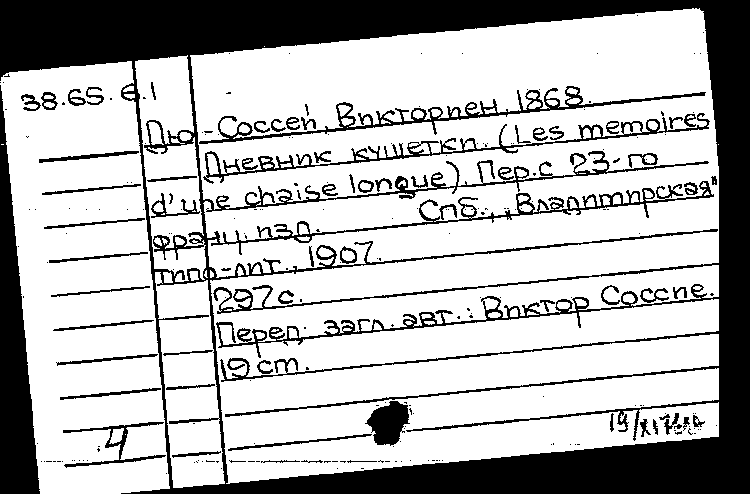 38.65.6.1
Дю-Соссей, Викториен, 1868.
Дневник кушетки. (Les memoires
d'une chaise longue). Пер. с 23-го
франц. изд. Спб., „Владимирская"
типо-лит., 1907.
297 с.
Перед загл. авт.: Виктор Соссие.
19 ст.
4